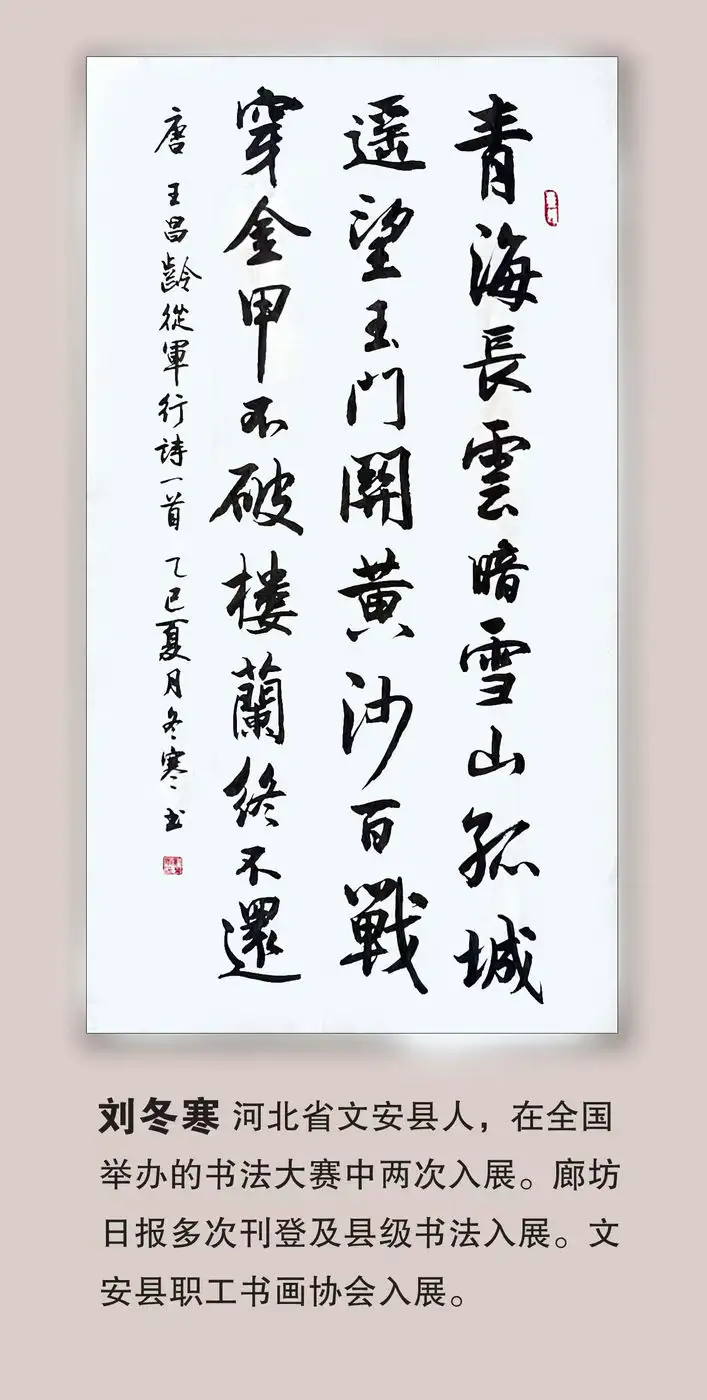 青海長雲暗雪山孤城
遥望玉門關黄沙百戰
穿金甲不破楼蘭終不還
唐王昌齡從軍行詩一首 乙巳夏月冬寒书
刘冬寒 河北省文安县人，在全国
举办的书法大赛中两次入展。廊坊
日报多次刊登及县级书法入展。文
安县职工书画协会入展。